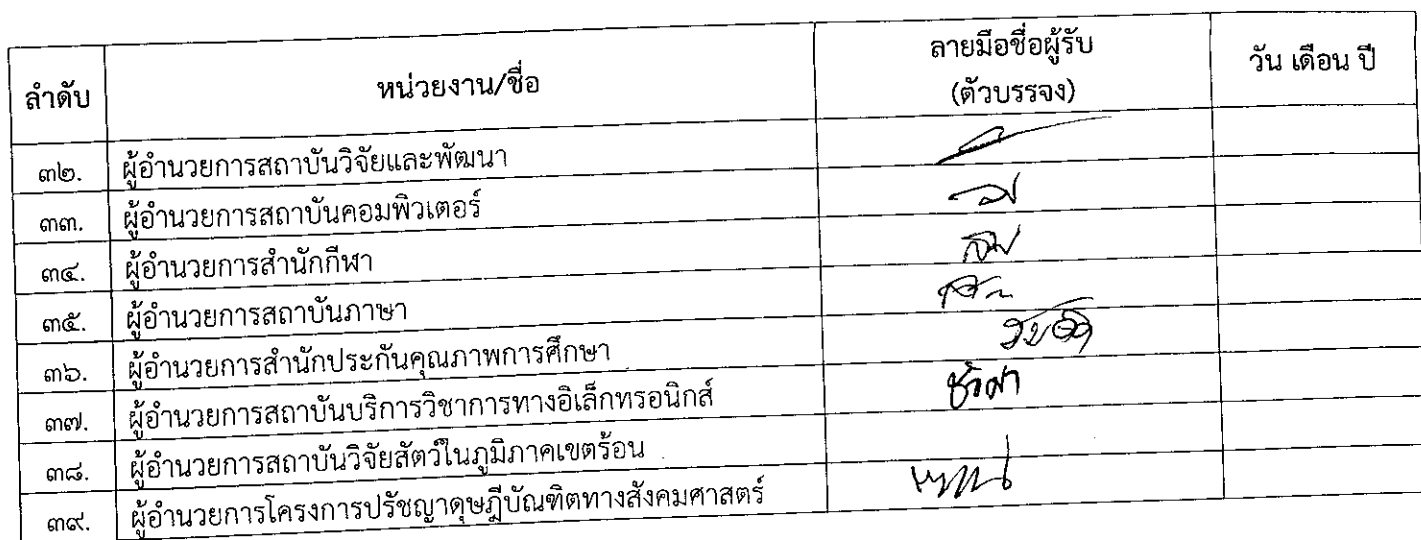 ลำดับ หน่วยงาน/ชื่อ ลายมือชื่อผู้รับ วัน เดือน ปี
(ตัวบรรจง)
๓๒. ผู้อำนวยการสถาบันวิจัยและพัฒนา
๓๓. ผู้อำนวยการสถาบันคอมพิวเตอร์
๓๔. ผู้อำนวยการสำนักกีฬา
๓๕. ผู้อำนวยการสถาบันภาษา
๓๖. ผู้อำนวยการสำนักประกันคุณภาพการศึกษา
๓๗. ผู้อำนวยการสถาบันบริการวิชาการทางอิเล็กทรอนิกส์
๓๘. ผู้อำนวยการสถาบันวิจัยสัตว์ในภูมิภาคเขตร้อน
๓๙. ผู้อำนวยการโครงการปรัชญาดุษฎีบัณฑิตทางสังคมศาสตร์